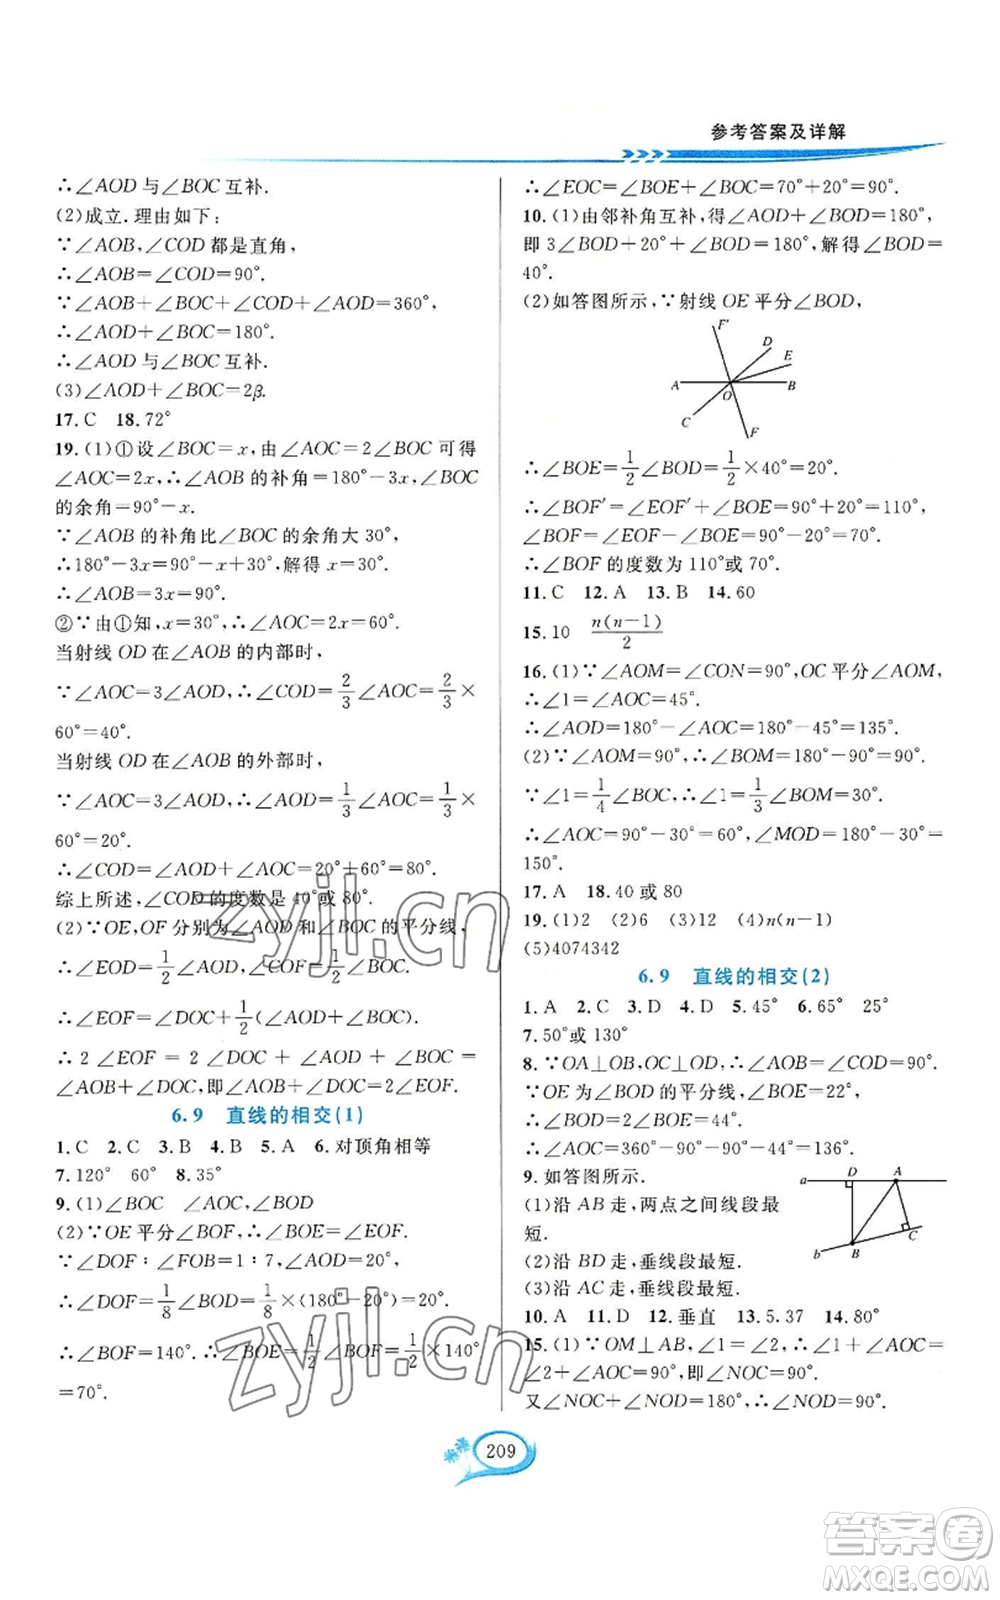 参考答案及详解
∴∠AOD与∠BOC互补.
(2)成立.理由如下:
∵∠AOB,∠COD都是直角,
∴∠AOB=∠COD=90°.
∵∠AOB+∠BOC+∠COD+∠AOD=360°,
∴∠AOD+∠BOC=180°.
∴∠AOD与∠BOC互补.
(3)∠AOD+∠BOC=2β.
17.C 18.72°
19.(1)①设∠BOC=x,由∠AOC=2∠BOC可得
∠AOC=2x,∴∠AOB的补角=180°-3x,∠BOC
的余角=90°-x.
∵∠AOB的补角比∠BOC的余角大30°,
∴180°-3x=90°-x+30°,解得x=30°.
∴∠AOB=3x=90°.
②∵由①知,x=30°,∴∠AOC=2x=60°.
当射线OD在∠AOB的内部时,
∵∠AOC=3∠AOD,∴∠COD=2/3∠AOC=2/3×
60°=40°.
当射线OD在∠AOB的外部时,
∵∠AOC=3∠AOD,∴∠AOD=1/3∠AOC=1/3×
60°=20°.
∴∠COD=∠AOD+∠AOC=20°+60°=80°.
综上所述,∠COD的度数是40°或80°.
(2)∵OE,OF分别为∠AOD和∠BOC的平分线,
∴∠EOD=1/2∠AOD,∠COF=1/2∠BOC.
∴∠EOF=∠DOC+1/2(∠AOD+∠BOC).
∴2∠EOF=2∠DOC+∠AOD+∠BOC=
∠AOB+∠DOC,即∠AOB+∠DOC=2∠EOF.
6.9 直线的相交(1)
1.C 2.C 3.B 4.B 5.A 6.对顶角相等
7.120° 60° 8.35°
9.(1)∠BOC ∠AOC,∠BOD
(2)∵OE平分∠BOF,∴∠BOE=∠EOF.
∵∠DOF∶∠FOB=1∶7,∠AOD=20°,
∴∠DOF=1/8∠BOD=1/8×(180°-20°)=20°.
∴∠BOF=140°.∴∠BOE=1/2∠BOF=1/2×140°
=70°.
∴∠EOC=∠BOE+∠BOC=70°+20°=90°.
10.(1)由邻补角互补,得∠AOD+∠BOD=180°,
即3∠BOD+20°+∠BOD=180°,解得∠BOD=
40°.
(2)如答图所示,∵射线OE平分∠BOD,
F′
D
E
A
O
B
C
F
∴∠BOE=1/2∠BOD=1/2×40°=20°.
∴∠BOF′=∠EOF′+∠BOE=90°+20°=110°,
∠BOF=∠EOF-∠BOE=90°-20°=70°.
∴∠BOF的度数为110°或70°.
11.C 12.A 13.B 14.60
15.10 n(n-1)/2
16.(1)∵∠AOM=∠CON=90°,OC平分∠AOM,
∴∠1=∠AOC=45°.
∴∠AOD=180°-∠AOC=180°-45°=135°.
(2)∵∠AOM=90°,∴∠BOM=180°-90°=90°.
∵∠1=1/4∠BOC,∴∠1=1/3∠BOM=30°.
∴∠AOC=90°-30°=60°,∠MOD=180°-30°=
150°.
17.A 18.40或80
19.(1)2 (2)6 (3)12 (4)n(n-1)
(5)4074342
6.9 直线的相交(2)
1.A 2.C 3.D 4.D 5.45° 6.65° 25°
7.50°或130°
8.∵OA⊥OB,OC⊥OD,∴∠AOB=∠COD=90°.
∵OE为∠BOD的平分线,∠BOE=22°,
∴∠BOD=2∠BOE=44°.
∴∠AOC=360°-90°-90°-44°=136°.
9.如答图所示.
(1)沿AB走,两点之间线段最
短.
(2)沿BD走,垂线段最短.
(3)沿AC走,垂线段最短.
a
D
A
C
b
B
10.A 11.D 12.垂直 13.5.37 14.80°
15.(1)∵OM⊥AB,∠1=∠2,∴∠1+∠AOC=
∠2+∠AOC=90°,即∠NOC=90°.
又∠NOC+∠NOD=180°,∴∠NOD=90°.
209
zyjl.cn
zyjl.cn
答案圈
MXQE.COM